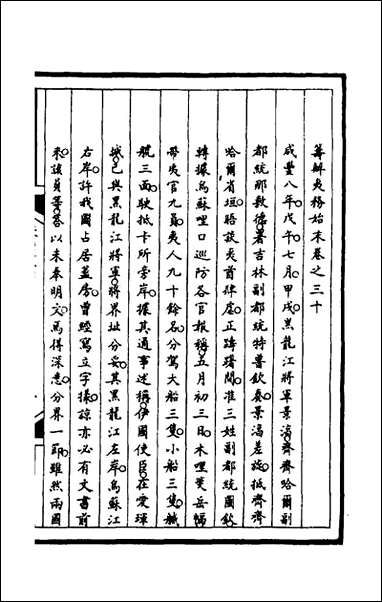 籌辦夷務始末卷之三十
咸豐八年戊午七月甲戌黑龍江將軍景淳齊齊哈爾副
都統那敷德署吉林副都統特普欽奏景淳差旋抵齊齊
哈爾省垣晤談夷酋肆虐正躊躇間准三姓副都統圖欽
轉據烏蘇哩口巡防各官報稱五月初三日木哩斐岳幅
帶夷官九員夷人九十餘名分駕大船三隻小船三隻艤
艍三面駛抵卡所旁岸據其通事述稱伊國使臣在愛琿
城已與黑龍江將軍將界址分妥其黑龍江左岸烏蘇江
右岸許我國占居蓋房曾經寫立字據諒亦必有文書前
來該員等答以未奉明文焉得深悉分界一節雖然兩國